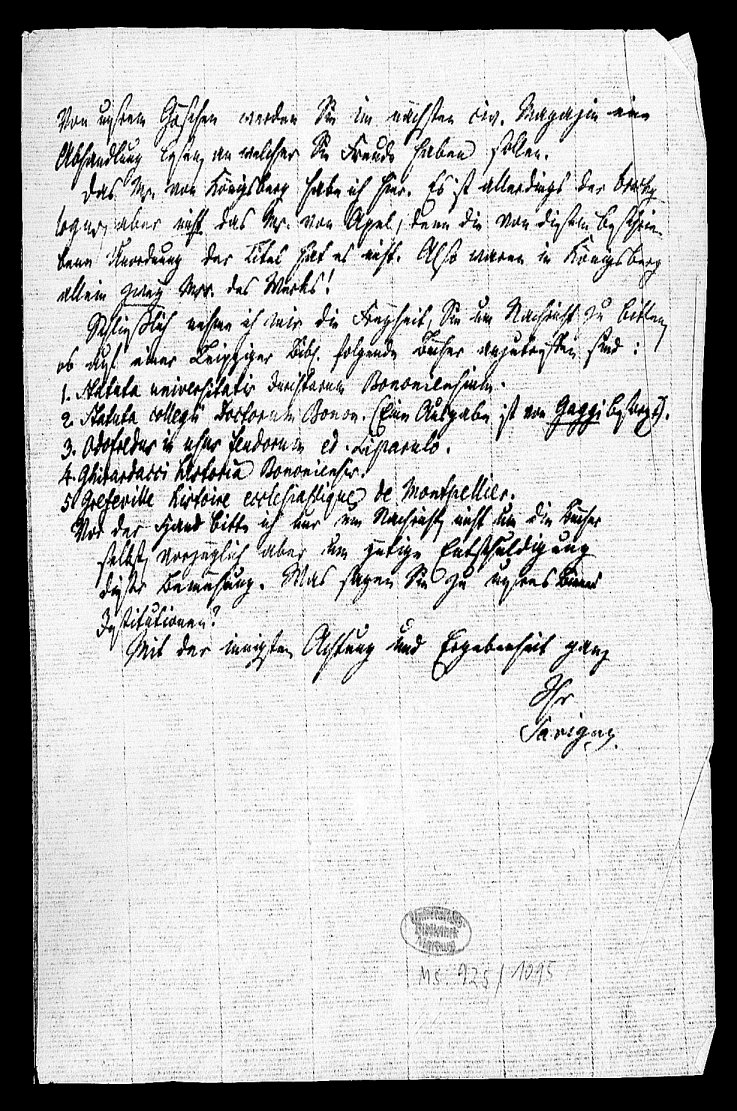 Von unsrem Göschen werden Sie im nächsten civ. Magazin eine
Abhandlung lesen, an welcher Sie Freude haben sollen.
Das Ms. von Königsberg habe ich hier. Es ist allerdings der brachy
logus, aber nicht das Ms. von Apel, denn die von diesem beschrie-
bene Anordnung der Titel hat es nicht. Also waren in Königsberg
allein zwey Mss. des Werks!
Schließlich nehme ich mir die Freyheit, Sie um Nachricht zu bitten,
ob auf einer Leipziger Bibl. folgende Bücher anzutreffen sind:
1. Statuta universitatis Juristarum Bononiensium.
2. Statuta collegii doctorum Bonon. (Eine Ausgabe ist von Gaggi besorgt).
3. Odofredus in usus feudorum ed.
4. Ghirardacci historia Bononiensis.
5. Grefeuille histoire ecclesiastique de Montpellier.
Vor der Hand bitte ich nur um Nachricht, nicht um die Bücher
selbst, vorzüglich aber um gütige Entschuldigung
dieser Bemühung. Was sagen Sie zu unsres
Institutionen?
Mit der innigsten Achtung und Ergebenheit ganz
Ihr
Savigny.
Universitäts-
Bibliothek
Marburg
MS. 725/1095